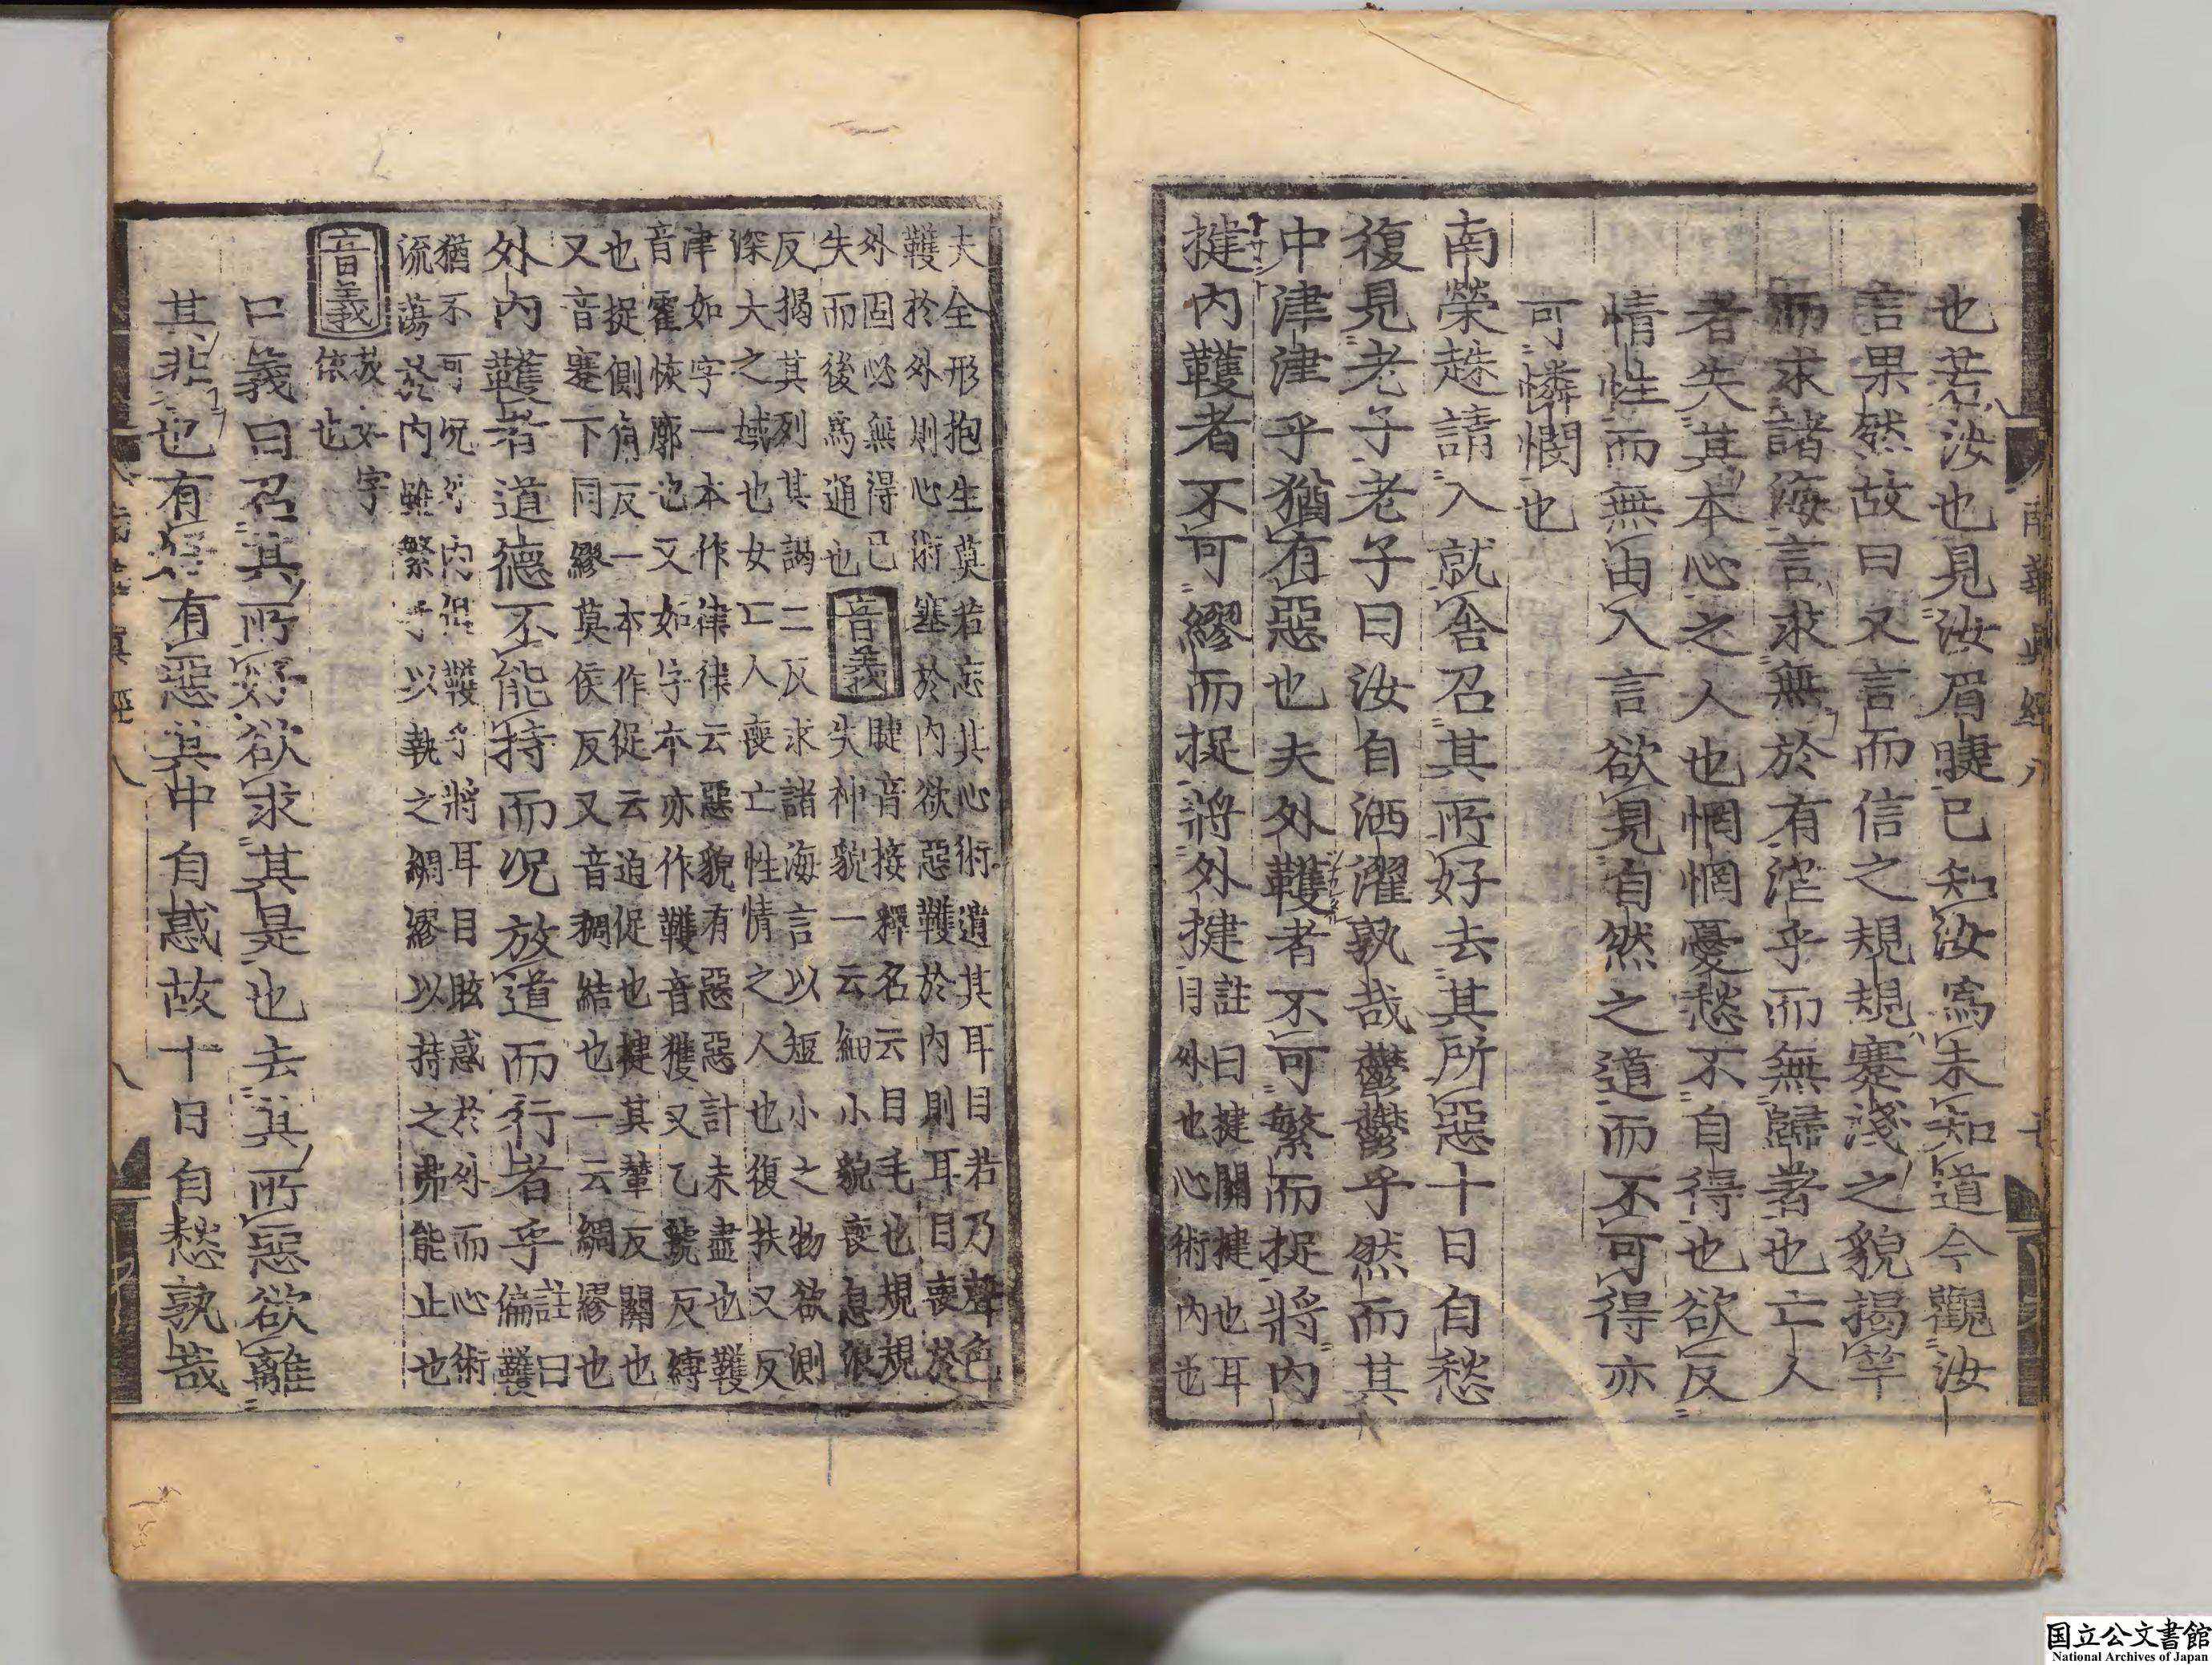 也若汝也見汝眉睫已知汝爲未知道今觀汝
言果然故曰又言而信之規規蹇淺之貌揭竿
而求諸海言求無於有滯乎而無歸著也亡人
者失其本心之人也惘惘憂愁不自得也欲反
情性而無由入言欲見自然之道而不可得亦
可憐憫也
南榮趎請入就舍召其所好去其所惡十日自愁
復見老子老子曰汝自洒濯孰哉鬱鬱乎然而其
中津津乎猶有惡也夫外韄者不可繁而捉將內
揵內韄者不可繆而捉將外揵
註曰揵關揵也耳
目外也心術內也
夫全形抱生莫若忘其心術遺其耳目若乃聲色
韄於外則心術塞於內欲惡韄於內則耳目喪於
外固必無得已
失而後爲通也
音義
睫音接釋名云目毛也規規
失神貌一云細小貌喪息浪
反揭其列其謁二反求諸海言以短小之物欲測
深大之域也女亡人喪亡性情之人也復扶又反
津如字一本作律律云惡貌有惡惡計未盡也韄
音霍恢廓也又如字本亦作韄音獲又乙虢反縛
也捉側角反一本作促云迫促也揵其輦反關也
又音蹇下同繆莫侯反又音稠結也一云綢繆也
外內韄者道德不能持而況放道而行者乎
註曰
偏韄
猶不可況外內俱韄乎將耳目眩惑於外而心術
流蕩於內雖繁手以執之綢繆以持之弗能止也
音義
放如字
依也
口義曰召其所好欲求其是也去其所惡欲離
其非也有是有惡其中自惑故十日自愁孰哉
南華真經八
国立公文書館
National Archives of Japan